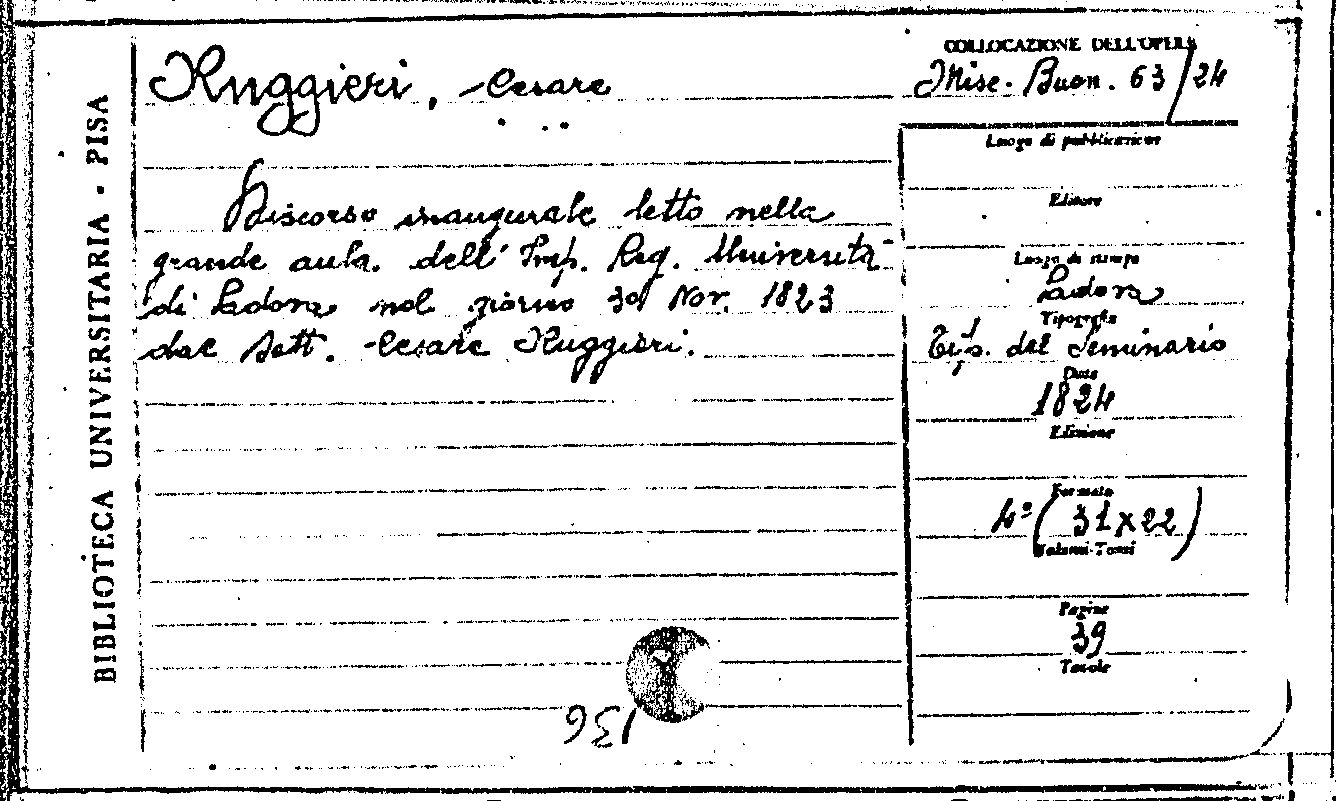 BIBLIOTECA UNIVERSITARIA - PISA
Ruggieri, Cesare
Discorso inaugurale letto nella
grande aula. dell' Imp. Reg. Università
di Padova nel giorno 30 Nov. 1823
dal Dott. Cesare Ruggieri.
COLLOCAZIONE DELL'OPERA
Misc. Buon. 63/24
Luogo di pubblicazione
Editore
Luogo di stampa
Padova
Tipografia
Tip. del Seminario
Data
1824
Edizione
Formato
4º (31x22)
Volumi-Tomi
Pagine
39
Tavole